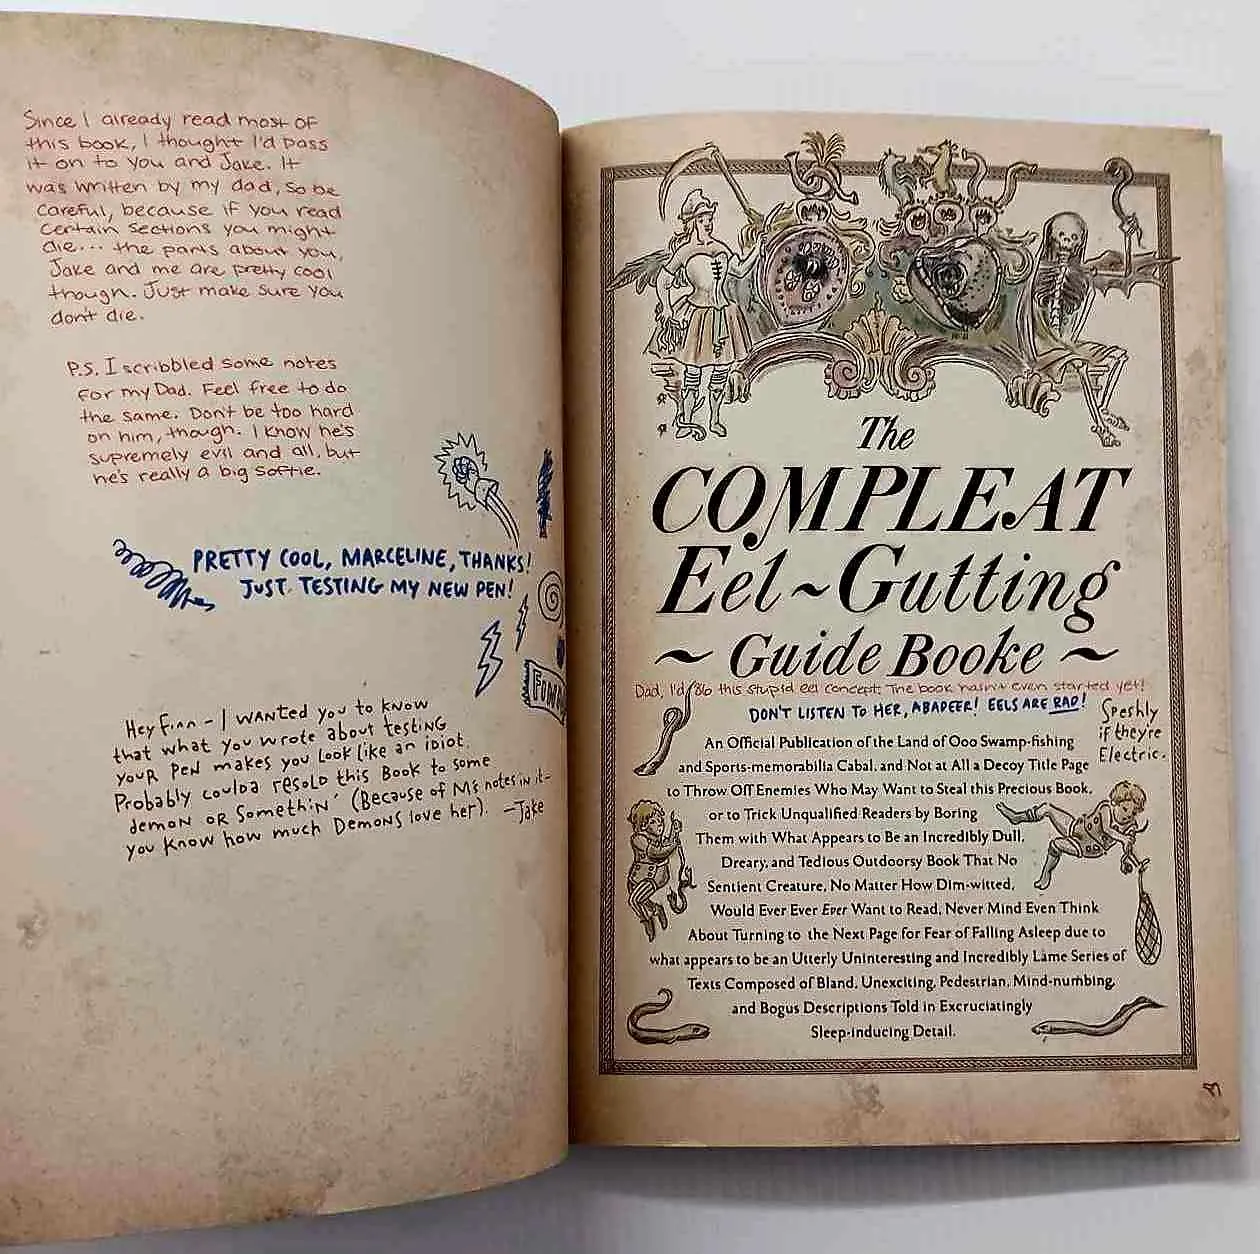 Since I already read most of
this book, I thought I'd pass
it on to you and Jake. It
was written by my dad, so be
careful, because if you read
certain sections you might
die... the parts about you,
Jake and me are pretty cool
though. Just make sure you
don't die.
P.S. I scribbled some notes
for my Dad. Feel free to do
the same. Don't be too hard
on him, though. I know he's
supremely evil and all, but
he's really a big softie.
PRETTY COOL, MARCELINE, THANKS!
JUST TESTING MY NEW PEN!
Hey Finn - I wanted you to know
that what you wrote about testing
your pen makes you look like an idiot.
Probably coulda resold this book to some
demon or somethin' (Because of M's notes in it-
you know how much Demons love her). -Jake
The
COMPLEAT
Eel~Gutting
~ Guide Booke ~
Dad, I'd 86 this stupid eel concept. The book hasn't even started yet!
DON'T LISTEN TO HER, ABADEER! EELS ARE RAD!
Speshly
if they're
Electric.
An Official Publication of the Land of Ooo Swamp-fishing
and Sports-memorabilia Cabal, and Not at All a Decoy Title Page
to Throw Off Enemies Who May Want to Steal this Precious Book,
or to Trick Unqualified Readers by Boring
Them with What Appears to Be an Incredibly Dull,
Dreary, and Tedious Outdoorsy Book That No
Sentient Creature, No Matter How Dim-witted,
Would Ever Ever Ever Want to Read, Never Mind Even Think
About Turning to the Next Page for Fear of Falling Asleep due to
what appears to be an Utterly Uninteresting and Incredibly Lame Series of
Texts Composed of Bland, Unexciting, Pedestrian, Mind-numbing,
and Bogus Descriptions Told in Excruciatingly
Sleep-inducing Detail.